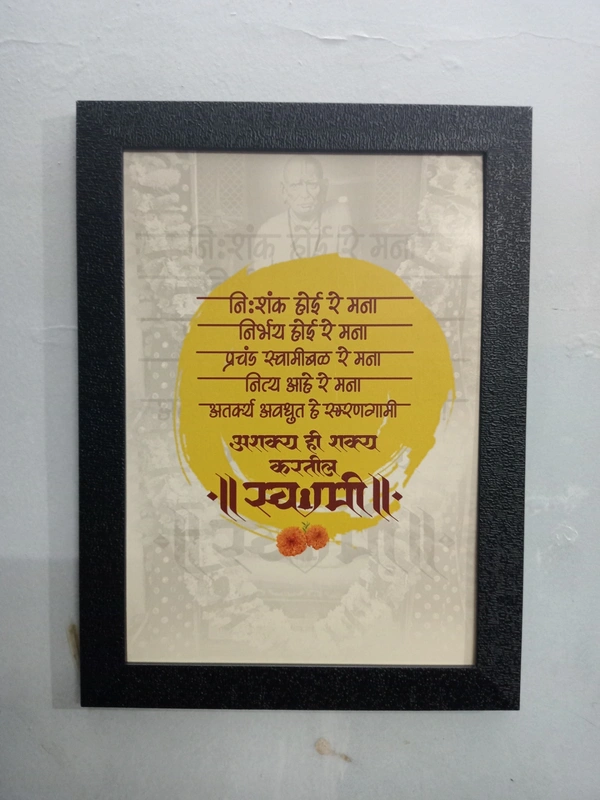 नि:शंक होई रे मना
नि:शंक होई रे मना
निर्भय होई रे मना
प्रचंड स्वामीबळ रे मना
नित्य आहे रे मना
अतर्क्य अवधुत हे स्मरणगामी
अशक्य ही शक्य
करतील
॥ स्वामी ॥
॥ स्वामी ॥